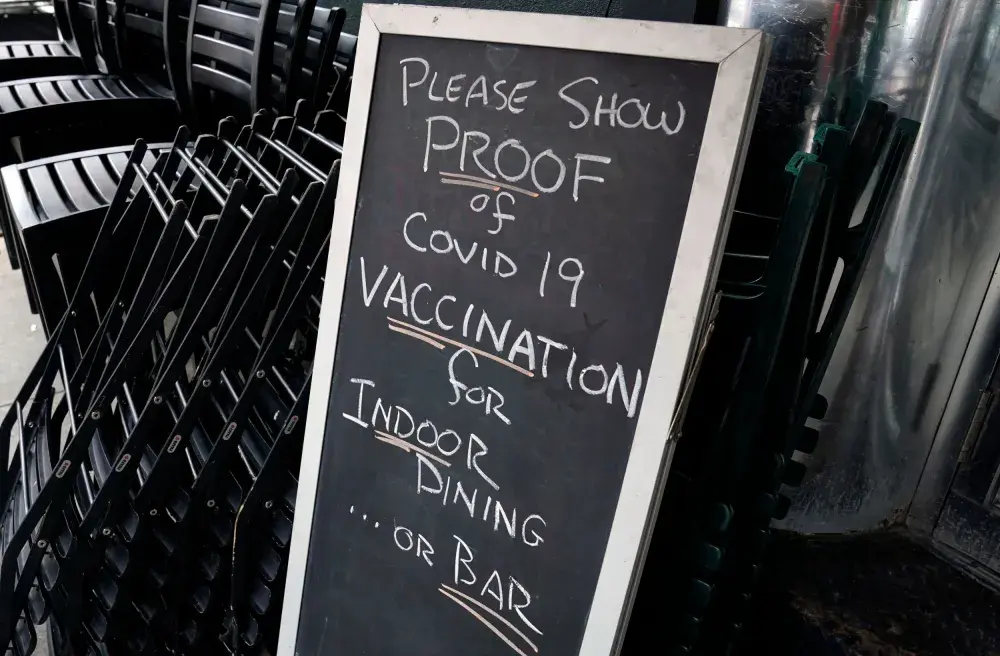 PLEASE SHOW
PROOF
of
COVID 19
VACCINATION
for
INDOOR
DINING
... OR BAR